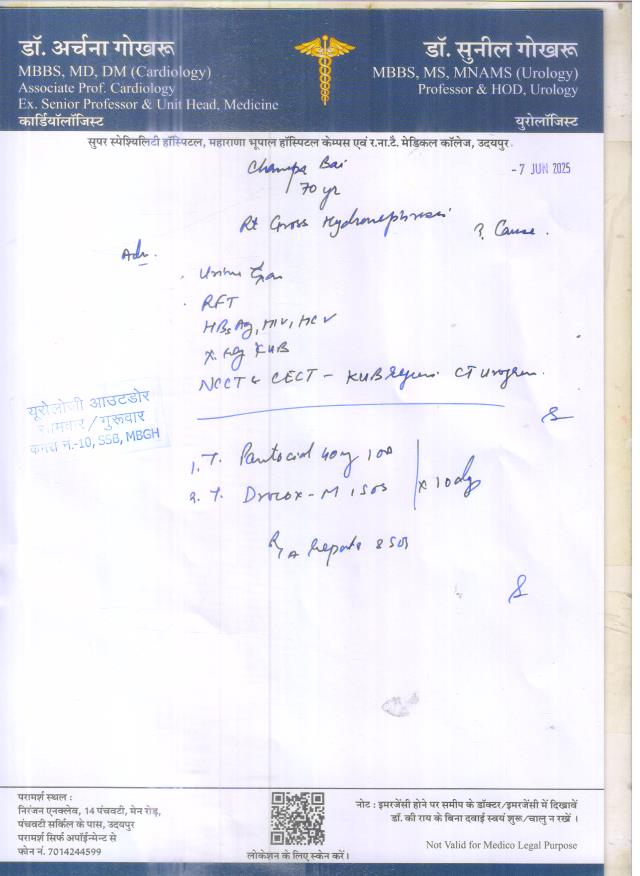 डॉ. अर्चना गोखरू
MBBS, MD, DM (Cardiology)
Associate Prof. Cardiology
Ex. Senior Professor & Unit Head, Medicine
कार्डियॉलॉजिस्ट
डॉ. सुनील गोखरू
MBBS, MS, MNAMS (Urology)
Professor & HOD, Urology
यूरोलॉजिस्ट
सुपर स्पेशियलिटी हॉस्पिटल, महाराणा भूपाल हॉस्पिटल कैम्पस एवं र.ना.टै. मेडिकल कॉलेज, उदयपुर
Champa Bai
-7 JUN 2025
70 yr
Rt Gross Hydronephrosis ? Cause.
Adv.
Urine
RFT
HBsAg, HIV, HCV
KUB
NCCT & CECT - KUB CT Urogram.
यूरोलोजी आउटडोर
सोमवार / गुरूवार
कमरा नं.-10, SSB, MBGH
1. T. Pantocid 40mg 1 OD
2. T. Drocox-M 1 SOS
x 10 days
Reports
परामर्श स्थल :
निरंजन एनक्लेव, 14 पंचवटी, मेन रोड़,
पंचवटी सर्किल के पास, उदयपुर
परामर्श सिर्फ अपॉईन्मेन्ट से
फोन नं. 7014244599
लोकेशन के लिए स्केन करें।
नोट : इमरजेंसी होने पर समीप के डॉक्टर/इमरजेंसी में दिखावें
डॉ. की राय के बिना दवाई स्वयं शुरू/चालु न रखें ।
Not Valid for Medico Legal Purpose